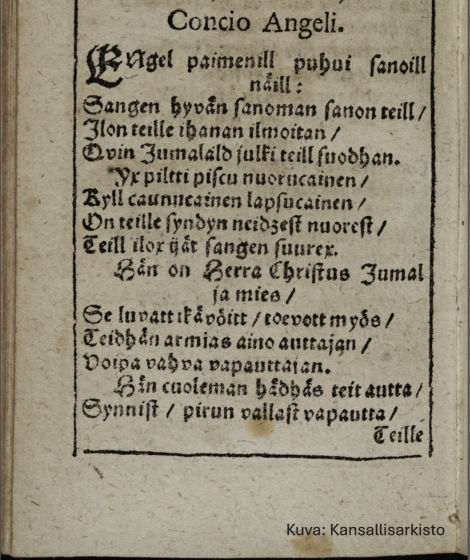 Concio Angeli.
ENgel paimenill puhui sanoill
näill:
Sangen hyvän sanoman sanon teill/
Ilon teille ihanan ilmoitan/
Qvin Jumalald julki teill suodhan.
Yx piltti piscu nuorucainen/
Kyll caunucainen lapsucainen/
On teille syndyn neidzest nuorest/
Teill ilox ijät sangen suurex.
Hän on Herra Christus Jumal
ja mies/
Se luvatt ikävöitt/toevott myös/
Teidhän armias aino auttajan/
Voipa vahva vapauttajan.
Hän cuoleman hädhäs teit autta/
Synnist/ pirun vallast vapautta/
Teille
Kuva: Kansallisarkisto